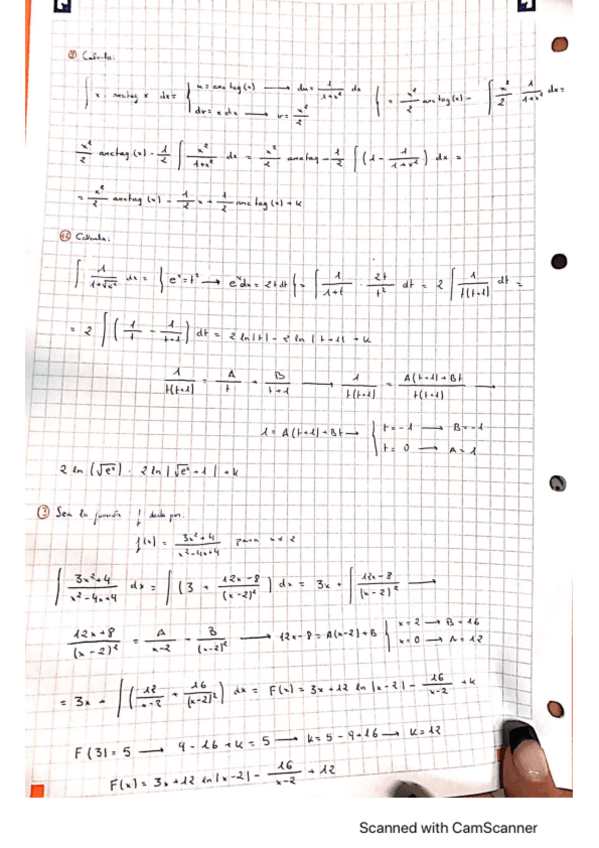 Calcula:
∫ x · arctag x dx = { u = arctag(x) → du = 1/(1+x²) dx
dv = x dx → v = x²/2 } = x²/2 arctag(x) - ∫ x²/2 · 1/(1+x²) dx =
x²/2 arctag(x) - 1/2 ∫ x²/(1+x²) dx = x²/2 arctag - 1/2 ∫ (1 - 1/(1+x²)) dx =
= x²/2 arctag(x) - 1/2 x + 1/2 arctag(x) + k
12 Calcula:
∫ 1/(1+√eˣ) dx = { eˣ = t² → eˣdx = 2t dt } = ∫ 1/(1+t) · 2t/t² dt = 2 ∫ 1/(t(t+1)) dt =
= 2 ∫ (1/t - 1/(t+1)) dt = 2 ln|t| - 2 ln|t+1| + k
1/(t(t+1)) = A/t + B/(t+1) → 1/(t(t+1)) = (A(t+1)+Bt)/(t(t+1)) →
1 = A(t+1)+Bt → { t = -1 → B = -1
t = 0 → A = 1
2 ln (√eˣ) - 2 ln |√eˣ + 1| + k
Sea la función f dada por:
f(x) = (3x²+4)/(x²-4x+4) para x≠2
∫ (3x²+4)/(x²-4x+4) dx = ∫ (3 + (12x-8)/(x-2)²) dx = 3x + ∫ (12x-8)/(x-2)² →
(12x+8)/(x-2)² = A/(x-2) - B/(x-2)² → 12x-8 = A(x-2)+B { x=2 → B=16
x=0 → A=12
= 3x + ∫ (12/(x-2) + 16/(x-2)²) dx = F(x) = 3x + 12 ln|x-2| - 16/(x-2) + k
F(3) = 5 → 9 - 16 + k = 5 → k = 5 - 9 + 16 → k = 12
F(x) = 3x + 12 ln|x-2| - 16/(x-2) + 12
Scanned with CamScanner